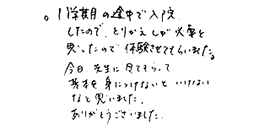 。1学期の途中で入院
したので、とりかえしが必要を
思ったので体験させてもらいました。
今日先生に見てもらって
基本を身につけないといけない
なと思いました。
ありがとうございました。